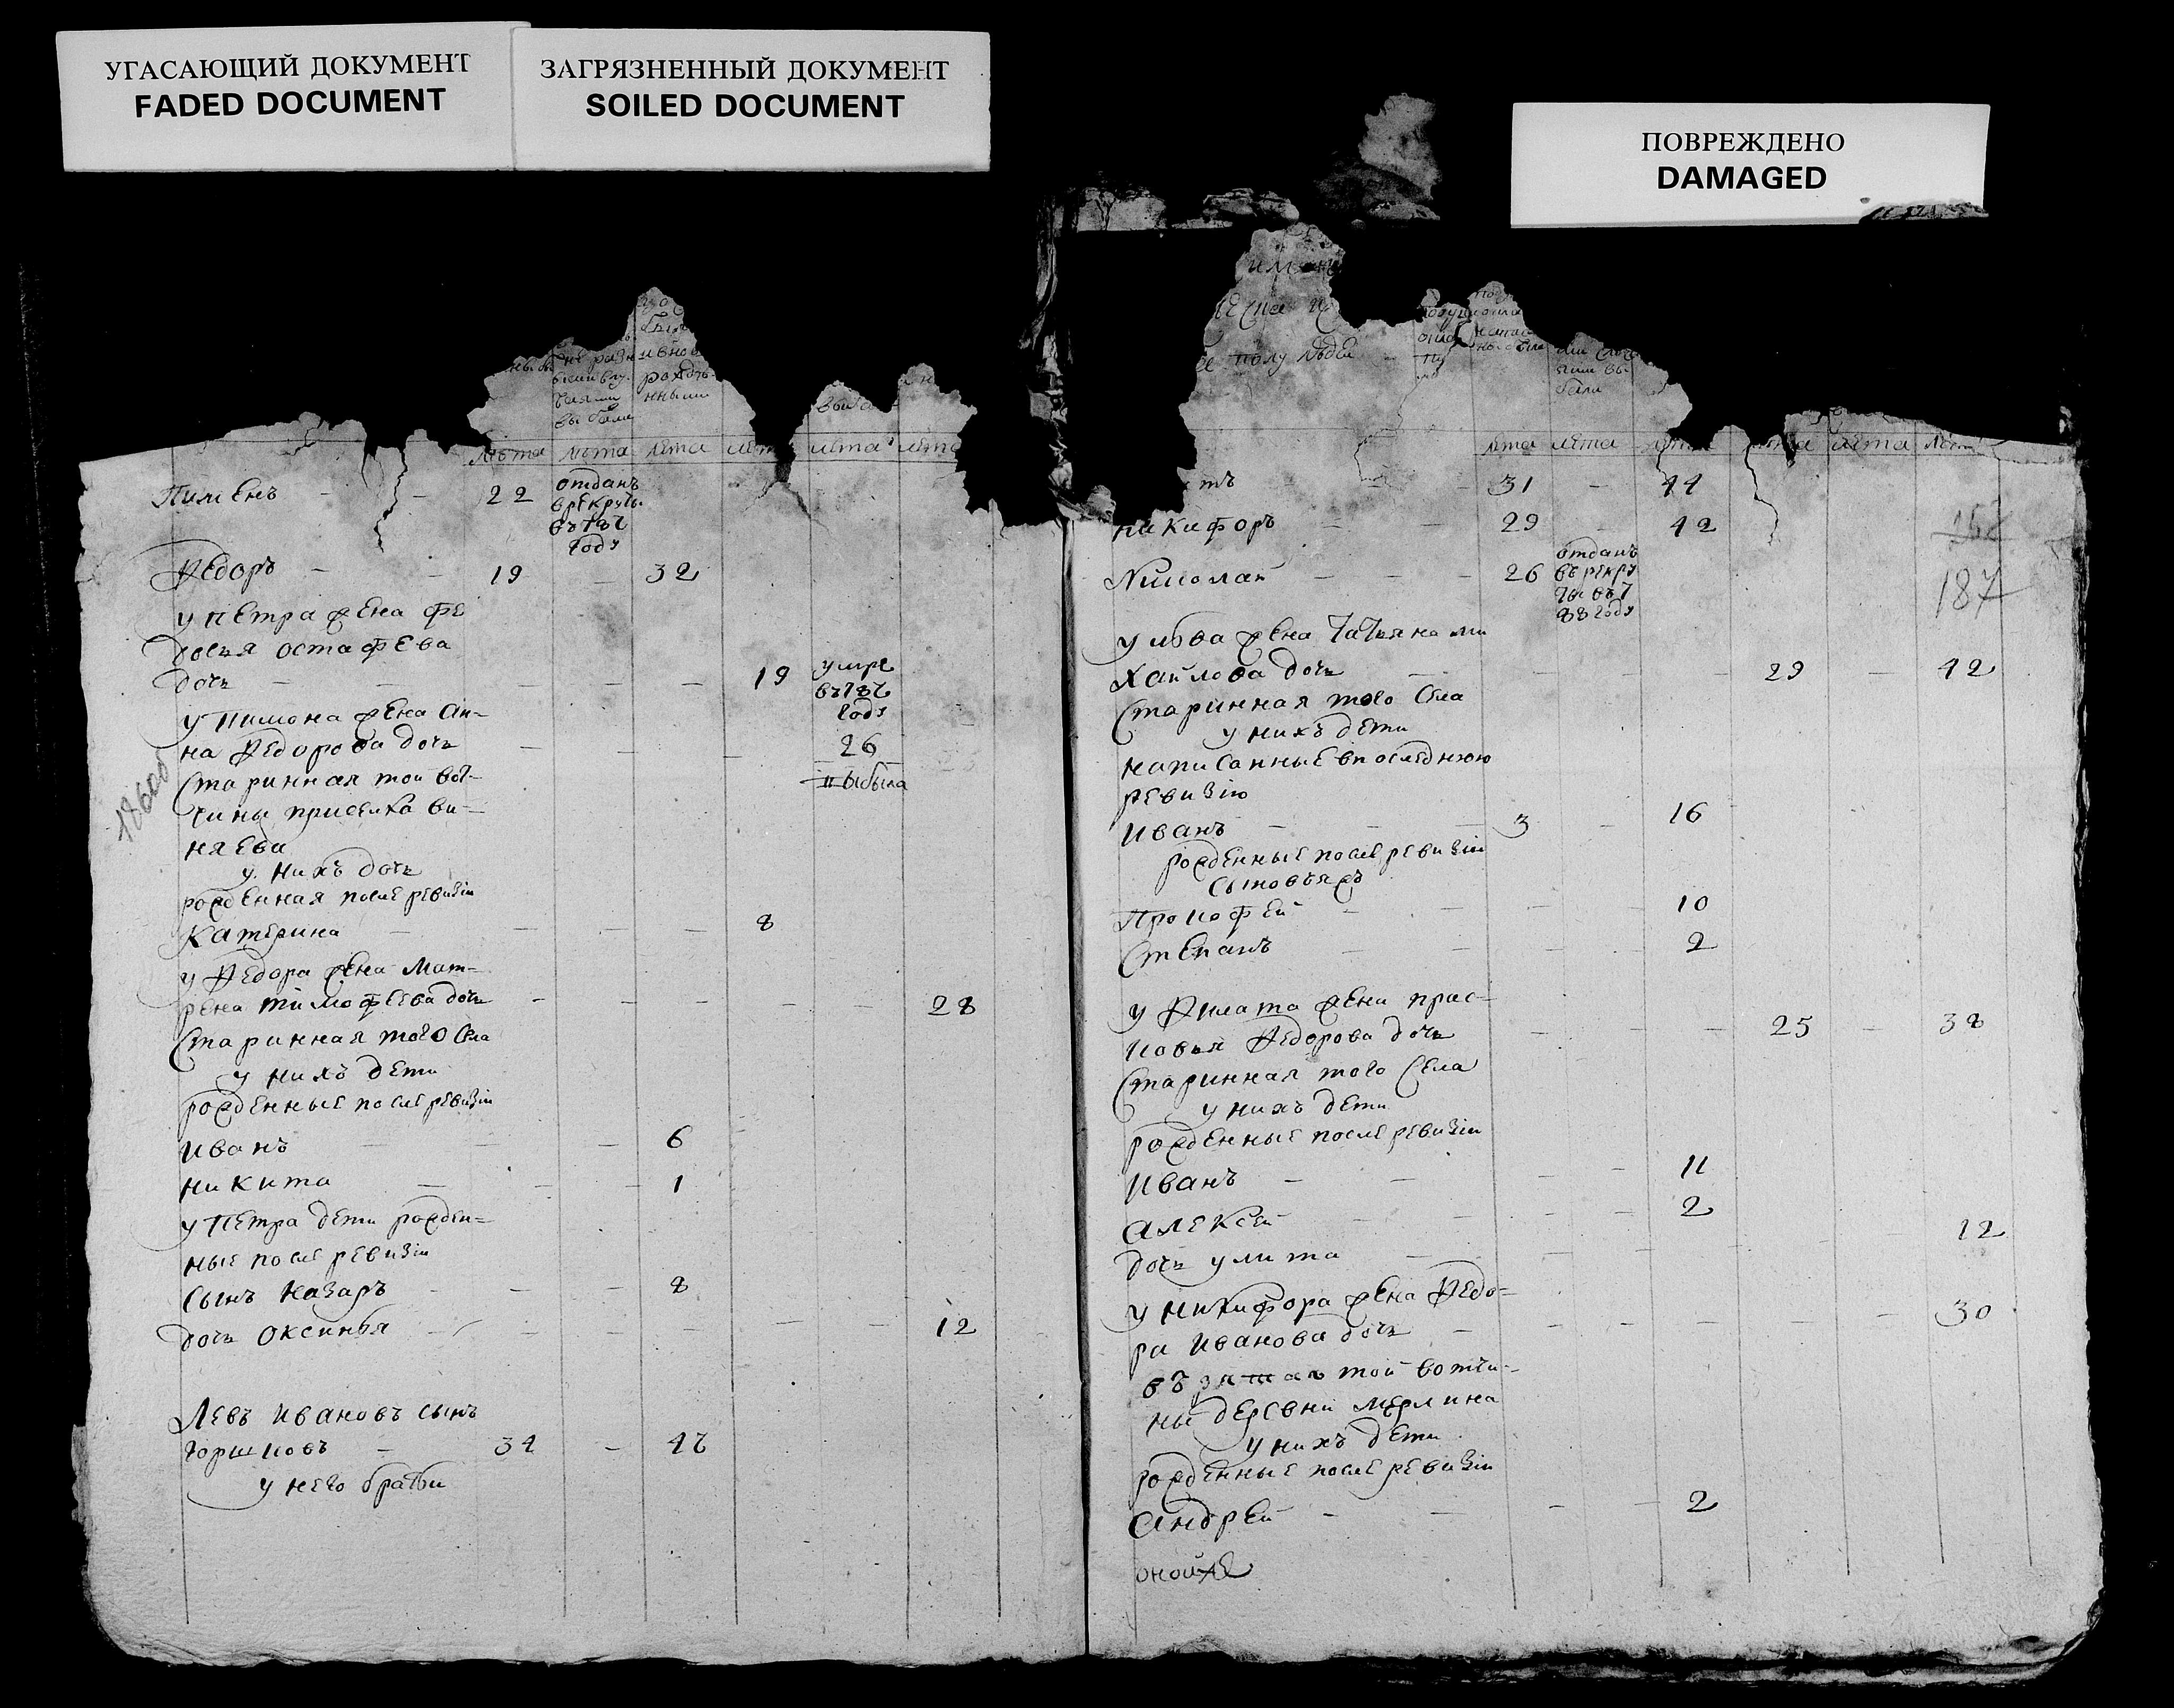 УГАСАЮЩИЙ ДОКУМЕНТ
FADED DOCUMENT
ЗАГРЯЗНЕННЫЙ ДОКУМЕНТ
SOILED DOCUMENT
ПОВРЕЖДЕНО
DAMAGED
лѣта лѣта лѣта лѣта лѣта лѣта
Пименъ - - 22 отданъ
врекруты
въ 787
году
Федоръ - - 19 - 32
у петра жена фе
досья остафева
дочь - - - - - 19 умре
въ 787
году
у пимона жена ан-
на Федорова дочь - - - 26
старинная той вот-
чины приселка ви-
няева
выбыла
у нихъ дочь
рожденная после ревизіи
катерина - - - - 8
у Федора жена мат-
рена тимофеева дочь - - - - - 28
старинная того села
у нихъ дети
рожденные после ревизіи
иванъ - - - 6
никита - - - 1
у петра дети рожден-
ные после ревизіи
сынъ назаръ - - - 8
дочь оксинья - - - - - - 12
Левъ ивановъ сынъ
горшковъ - 34 - 47
у него братьи
186об
полу людей
лѣта лѣта лѣта лѣта лѣта лѣта
тъ - - 31 - 44
никифоръ - - 29 - 42
Николай - - - 26 отданъ
въ рекру
ты въ 7
88 году
187
у лва жена татьяна ми
хайлова дочь - - - - 29 - 42
старинная того села
у нихъ дети
написанные в последнюю
ревизію
иванъ - - - 3 - 16
рожденные после ревизіи
сыновья жъ
прокофей - - - - 10
степанъ - - - - 2
у Филата жена прас-
ковья Федорова дочь - - - 25 - 38
старинная того села
у нихъ дети
рожденные после ревизіи
иванъ - - - - 11
алексей - - - - 2
дочь улита - - - - - - 12
у никифора жена Федо-
ра иванова дочь - - - - - - 30
взятая той вотчи-
ны деревни мерлина
у нихъ дети
рожденные после ревизіи
андрей - - - - 2
оной же